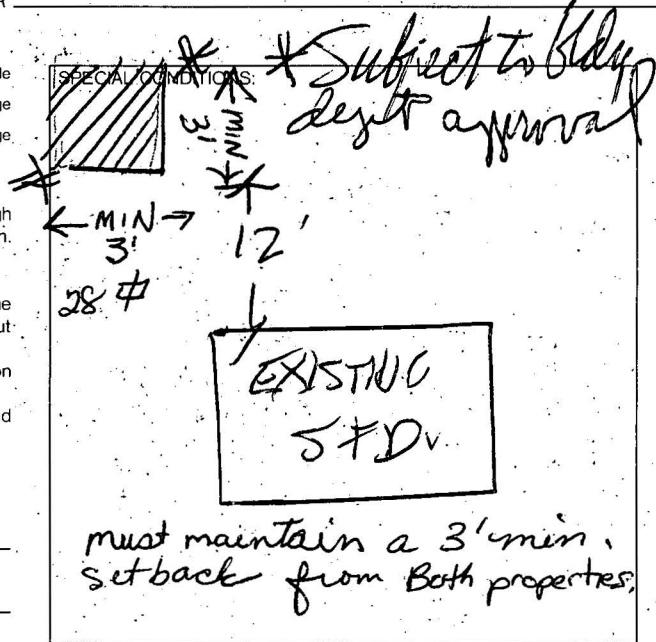 SPECIAL CONDITIONS:
* * Subject to bldg
dept approval
MIN
3'
MIN
3'
12'
28
EXISTING
SFD
must maintain a 3' min.
setback from Both properties.